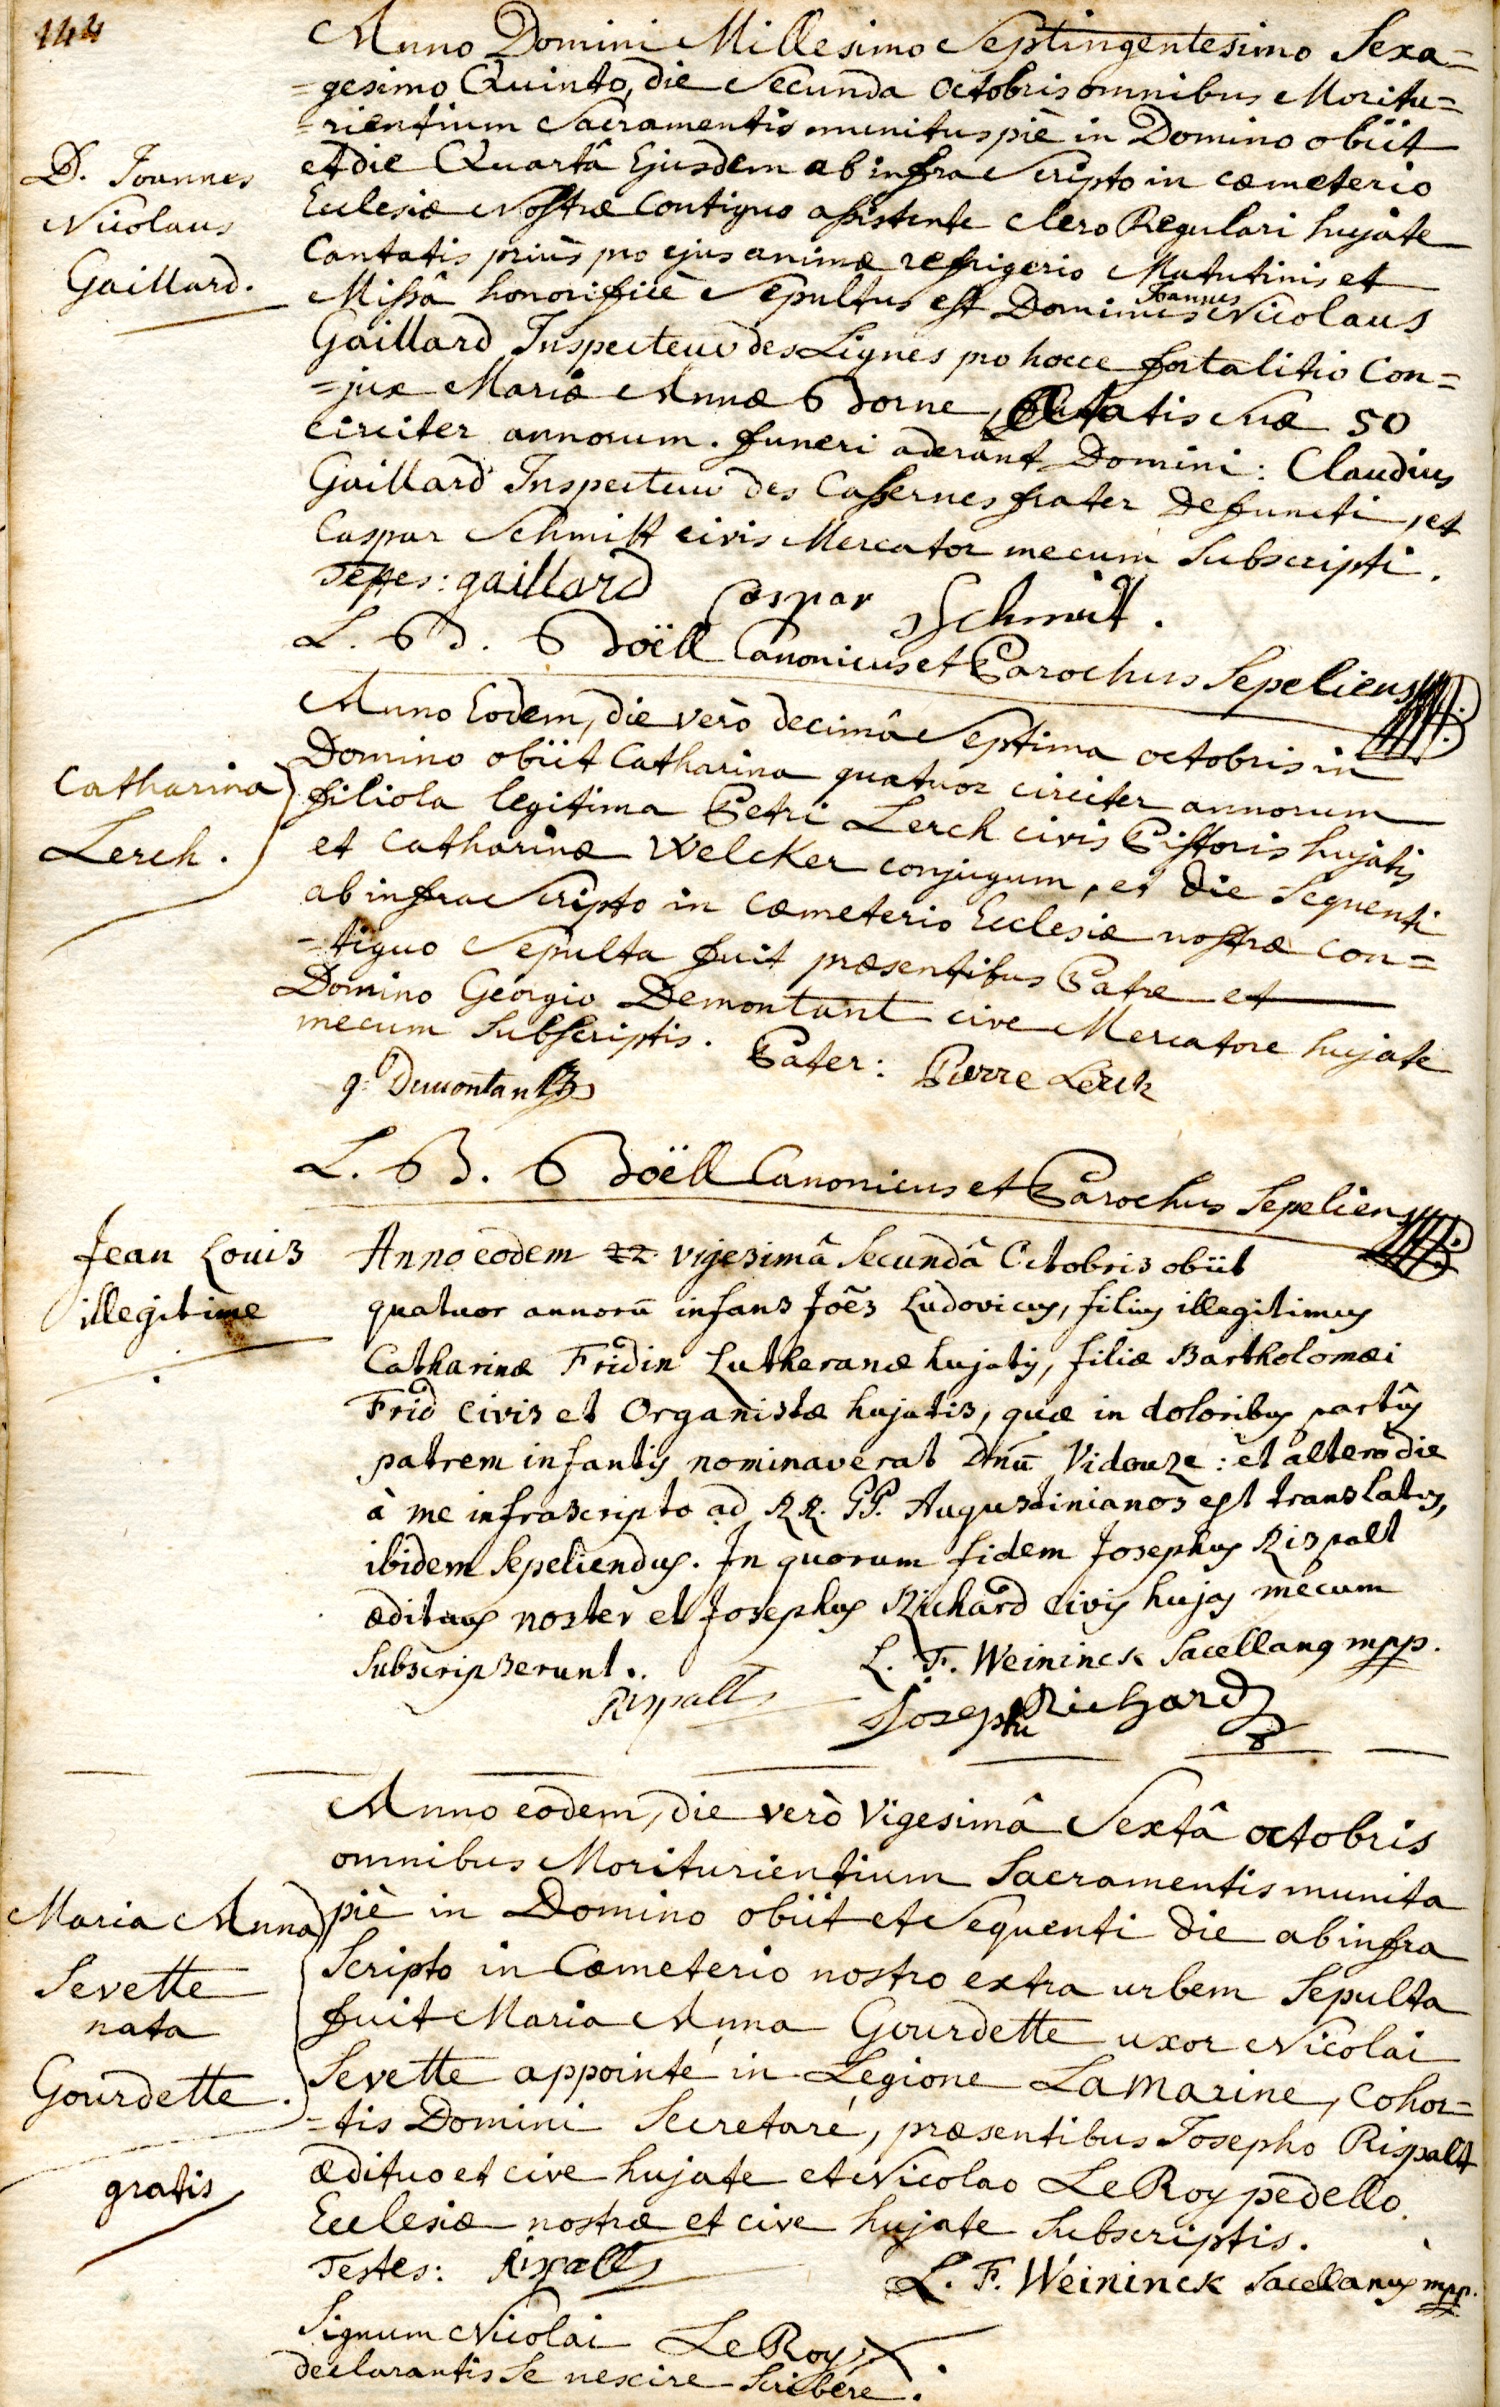 144
Anno Domini Millesimo Septingentesimo Sexa=
=gesimo Quinto, die Secunda octobris omnibus Moritu=
=rientium Sacramentis munitus piè in Domino obiit
et die Quartâ Ejusdem ab infra Scripto in cæmeterio
Ecclesiæ Nostræ Contiguo assistente Clero Regulari hujate
Cantatis priùs pro ejus animæ refrigerio Matutinis et
Missâ honorificè Sepultus est Dominus Joannes Nicolaus
Gaillard Inspecteur des Lignes pro hocce fortalitio Con=
=jux Mariæ Annæ Borne, Ætatis Suæ 50
circiter annorum. funeri aderant Domini: Claudius
Gaillard Inspecteur des Casernes frater Defuncti, et
Caspar Schmitt civis Mercator mecum Subscripti.
Testes: gaillard Caspar Schmitt.
L. B. Boëll Canonicus et Parochus Sepeliens
D. Joannes
Nicolaus
Gaillard.
Anno Eodem, die verò decimâ Septima octobris in
Domino obiit Catharina quatuor circiter annorum
filiola legitima Petri Lerch civis Pistoris hujatis
et Catharinæ Welcker conjugum, et die Sequenti
ab infra Scripto in Cæmeterio Ecclesiæ nostræ con=
=tiguo Sepulta fuit præsentibus Patre et
Domino Georgio Demontant cive Mercatore hujate
mecum Subscriptis. Pater: Pierre Lerch
g: Dumontant
L. B. Boëll Canonicus et Parochus Sepeliens
Catharina
Lerch.
Anno eodem 22 vigesimâ Secundâ Octobris obiit
quatuor annorū infans Joēs Ludovicus, filius illegitimus
Catharinæ Fridin Lutheranæ hujatis, filiæ Bartholomæi
Frid Civis et Organistæ hujatis, quæ in doloribus partûs
patrem infantis nominaverat Dnū Videuze: et altero die
à me infrascripto ad RR. PP. Augustinianos est translatus,
ibidem Sepeliendus. In quorum fidem Josephus Rispalt
ædituus noster et Josephus Richard Civis hujas mecum
Subscripserunt.
L. F. Weininck Sacellanus mpp.
Rispalt Joseph Richard
Jean Louis
illegitime
Anno eodem, die verò Vigesimâ Sextâ octobris
omnibus Moriturientium Sacramentis munita
piè in Domino obiit et Sequenti die ab infra
Scripto in Cæmeterio nostro extra urbem Sepulta
fuit Maria Anna Gourdette uxor Nicolai
Sevette appointé in Legione La Marine, Cohor=
=tis Domini Secretaré, præsentibus Josepho Rispalt
ædituo et cive hujate et Nicolao Le Roy pedello
Ecclesiæ nostræ et cive hujate Subscriptis.
Testes: Rispalt
L. F. Weininck Sacellanus mpp.
Signum Nicolai Le Roy X
declarantis Se nescire Scribere.
Maria Anna
Sevette
nata
Gourdette.
gratis